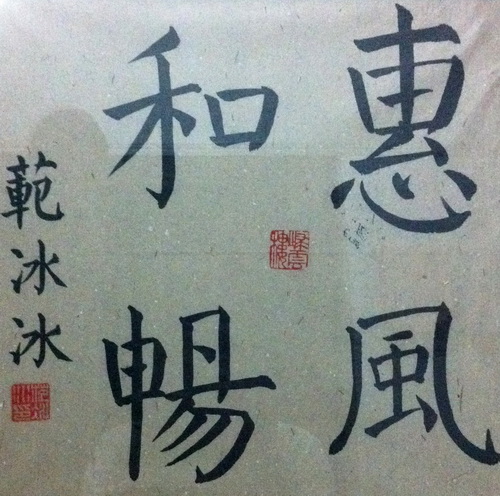 惠風
和暢
範冰冰